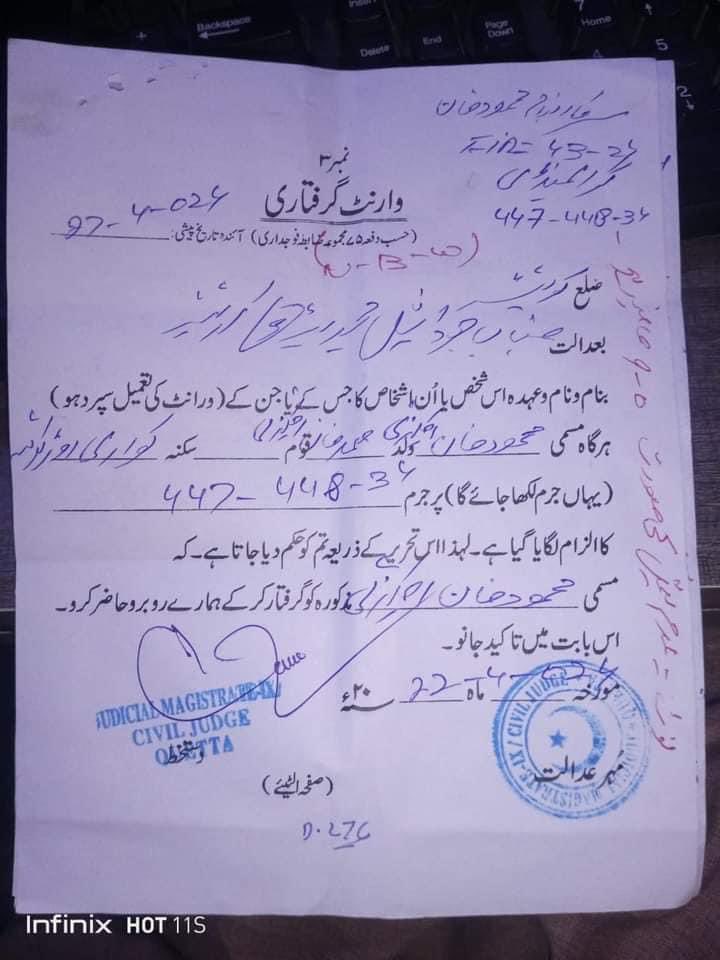 Backspace
Insert
Delete
End
Page Down
7
Home
4
5
2
سرکار بنام محمود خان
FIR = 43-24
447-448-34
نمبر ۳
وارنٹ گرفتاری
27-4-024
(حسب دفعہ ۷۵ مجموعہ ضابطہ فوجداری) آئندہ تاریخ پیشی:
(N-B-W)
ضلع کوئٹہ
بعدالت جناب جوڈیشل مجسٹریٹ کوئٹہ
بنام و نام و عہدہ اس شخص یا اُن اشخاص کا جس کے یا جن کے (ورانٹ کی تعمیل سپرد ہو)
ہرگاہ مسمی محمود خان اچکزئی ولد قوم اچکزئی سکنہ
(یہاں جرم لکھا جائے گا) پر جرم 447-448-34
کا الزام لگایا گیا ہے۔ لہذا اس تحریر کے ذریعہ تم کو حکم دیا جاتا ہے۔ کہ
مسمی محمود خان اچکزئی مذکورہ کو گرفتار کر کے ہمارے روبرو حاضر کرو۔
اس بابت میں تاکید جانو۔
مورخہ 22-4-024 ماہ سنہ ۲۰ء
JUDICIAL MAGISTRATE-IX/
CIVIL JUDGE
QUETTA
دستخط
مہر عدالت
JUDICIAL MAGISTRATE-IX / CIVIL JUDGE
(صفحہ الٹیئے)
D.276
Infinix HOT 11S